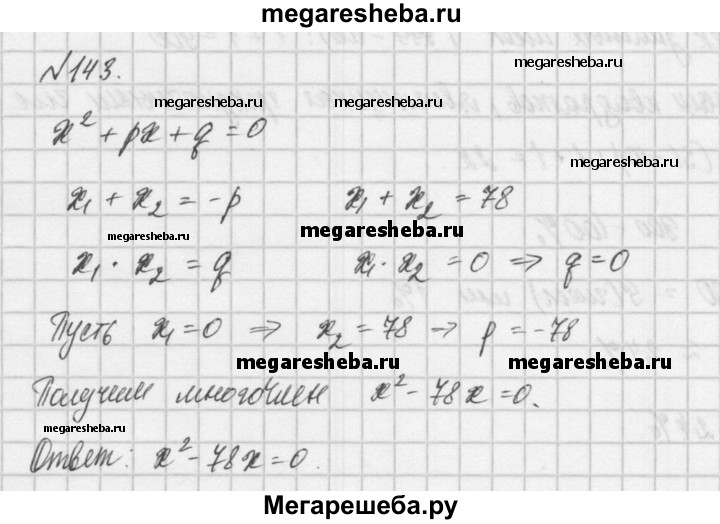 megaresheba.ru
№143.
megaresheba.ru
megaresheba.ru megaresheba.ru
x² + px + q = 0
megaresheba.ru
x₁ + x₂ = -p x₁ + x₂ = 78
megaresheba.ru megaresheba.ru megaresheba.ru
x₁ · x₂ = q x₁ · x₂ = 0 ⇒ q = 0
Пусть x₁ = 0 ⇒ x₂ = 78 → p = -78
megaresheba.ru megaresheba.ru
Получим многочлен x² - 78x = 0.
megaresheba.ru megaresheba.ru
Ответ: x² - 78x = 0.
Мегарешеба.ру